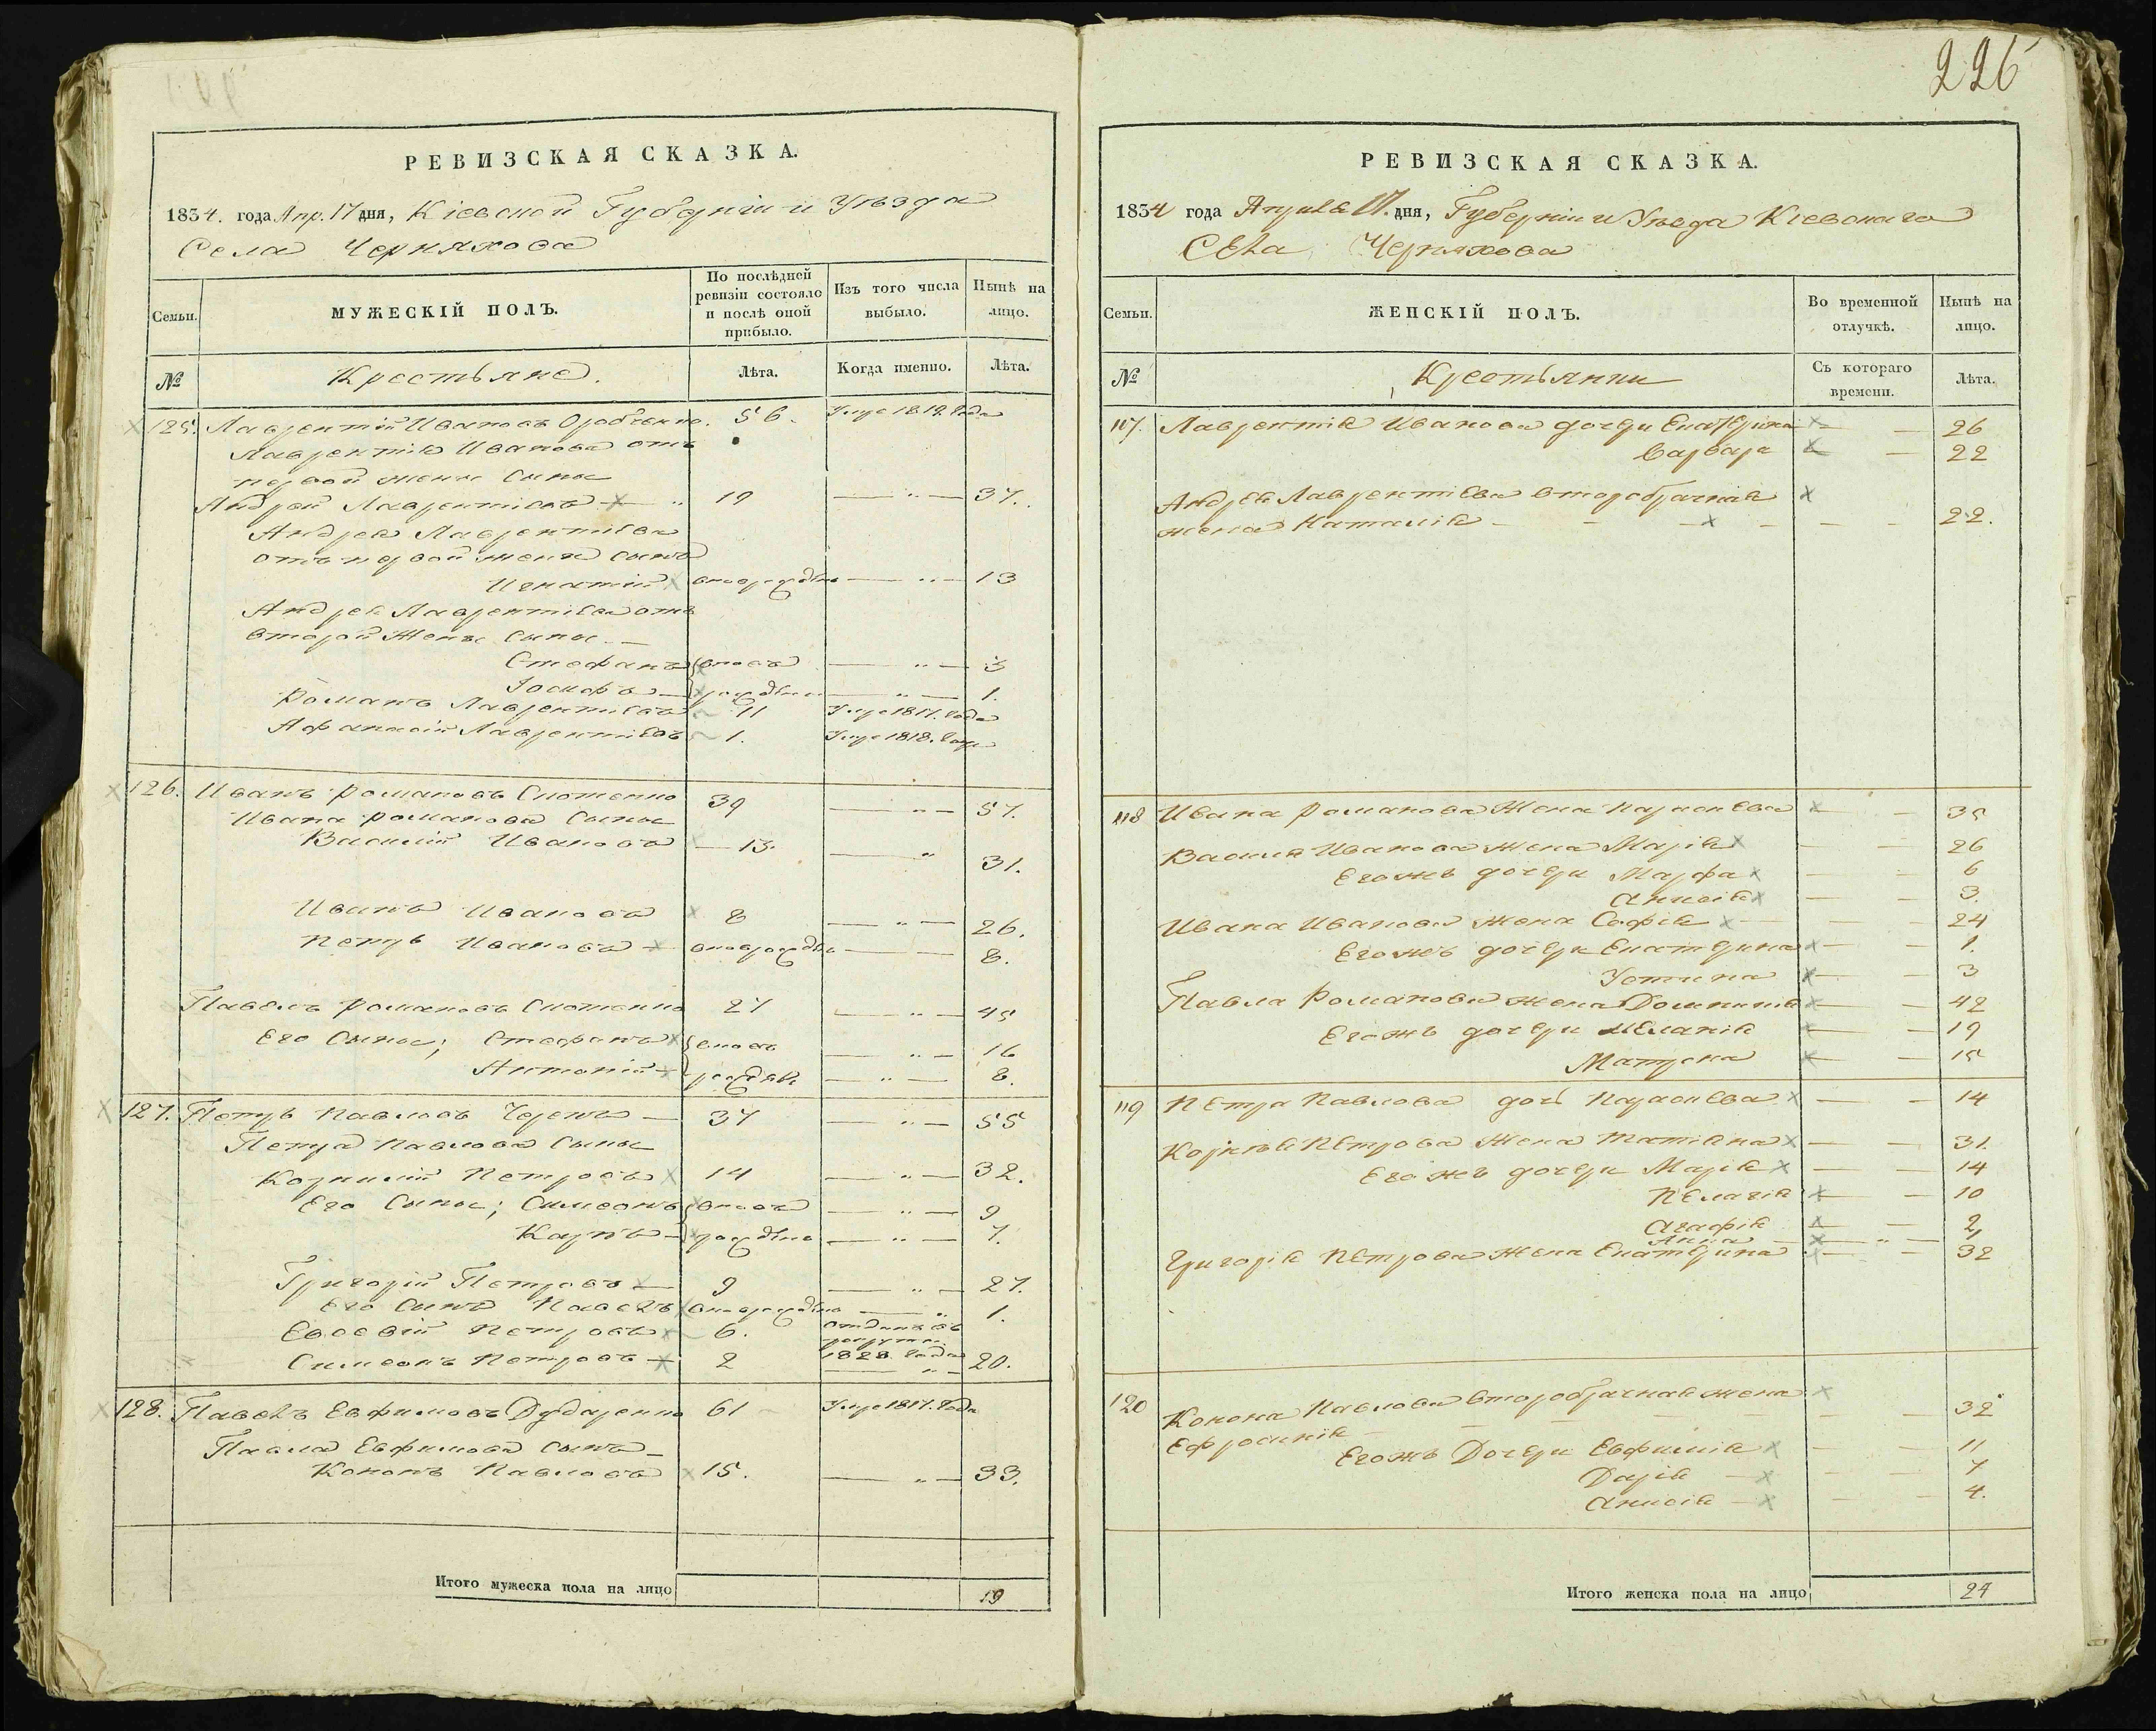 РЕВИЗСКАЯ СКАЗКА.
1834. года Апр. 17 дня, Кіевской Губерніи и Уѣзда
Села Черняхова
Семьи. МУЖЕСКІЙ ПОЛЪ. По послѣдней ревизіи состояло и послѣ оной прибыло. Изъ того числа выбыло. Нынѣ на лицо.
№ Крестьяне. Лѣта. Когда именно. Лѣта.
125. Лаврентій Ивановъ 56. Умре 1819 года
Лаврентія Иванова отъ
первой жены сыны
Андрей Лаврентіевъ 19 — " — 37.
Андрея Лаврентіева
отъ первой жены сынъ
Игнатій вновьрожденъ — " — 13
Андрея Лаврентіева отъ
второй жены сыны
Стефанъ вновь — " — 3
Іосифъ рождены — " — 1.
Романъ Лаврентіевъ 11 Умре 1817. года
Афанасій Лаврентіевъ 1. Умре 1818. года
126. Иванъ Романовъ Скотенко 39 — " — 57.
Ивана Романова сыны
Василій Ивановъ 13. — " 31.
Иванъ Ивановъ 8 — " — 26.
Петръ Ивановъ вновьрожденъ — 8.
Павелъ Романовъ Скотенко 27 — " — 45
Его сыны; Стефанъ вновь — " — 16
Антоній рожденъ — " — 8.
127. Петръ Павловъ 37 — " — 55
Петра Павлова сыны
Корнилій Петровъ 14 — " — 32.
Его сыны; Симеонъ вновь — " — 9
Карпъ рождены — " — 7.
Григорій Петровъ 9 — " — 27.
Его сынъ Павелъ вновьрожденъ — " 1.
Евсевій Петровъ 6. отданъ въ рекруты 1828 года
Симеонъ Петровъ 2 — " — 20.
128. Павелъ Евфимовъ Дударенко 61 Умре 1817. года
Павла Евфимова сынъ
Кононъ Павловъ 15. — " — 33.
Итого мужеска пола на лицо 19
226
РЕВИЗСКАЯ СКАЗКА.
1834 года Апреля 17. дня, Губерніи и Уѣзда Кіевскаго
Села Черняхова
Семьи. ЖЕНСКІЙ ПОЛЪ. Во временной отлучкѣ. Нынѣ на лицо.
№ Крестьянки Съ котораго времени. Лѣта.
117. Лаврентія Иванова дочери Екатерина — — 26
Варвара — — 22
Андрея Лаврентіева второбрачная
жена Наталія — — 22.
118 Ивана Романова жена Параскева — — 35
Василя Иванова жена Марія — — 26
Его жъ дочери Марфа — — 6
Анисія — — 3.
Ивана Иванова жена Софія — — 24
Его жъ дочери Екатерина — — 1.
Устина — — 3
Павла Романова жена Домникія — — 42
Его жъ дочери Меланія — — 19
Матрона — — 15
119 Петра Павлова дочь Параскева — — 14
Корнѣя Петрова жена Татіяна — — 31.
Его жъ дочери Марія — — 14
Пелагія — — 10
Агафія — — 2
Анна — " —
Григорія Петрова жена Екатерина — — 32
120 Конона Павлова второбрачная жена
Ефросинія — — 32
Его жъ Дочери Евфимія — — 11
Дарія — — 7
Анисія — — 4.
Итого женска пола на лицо 24